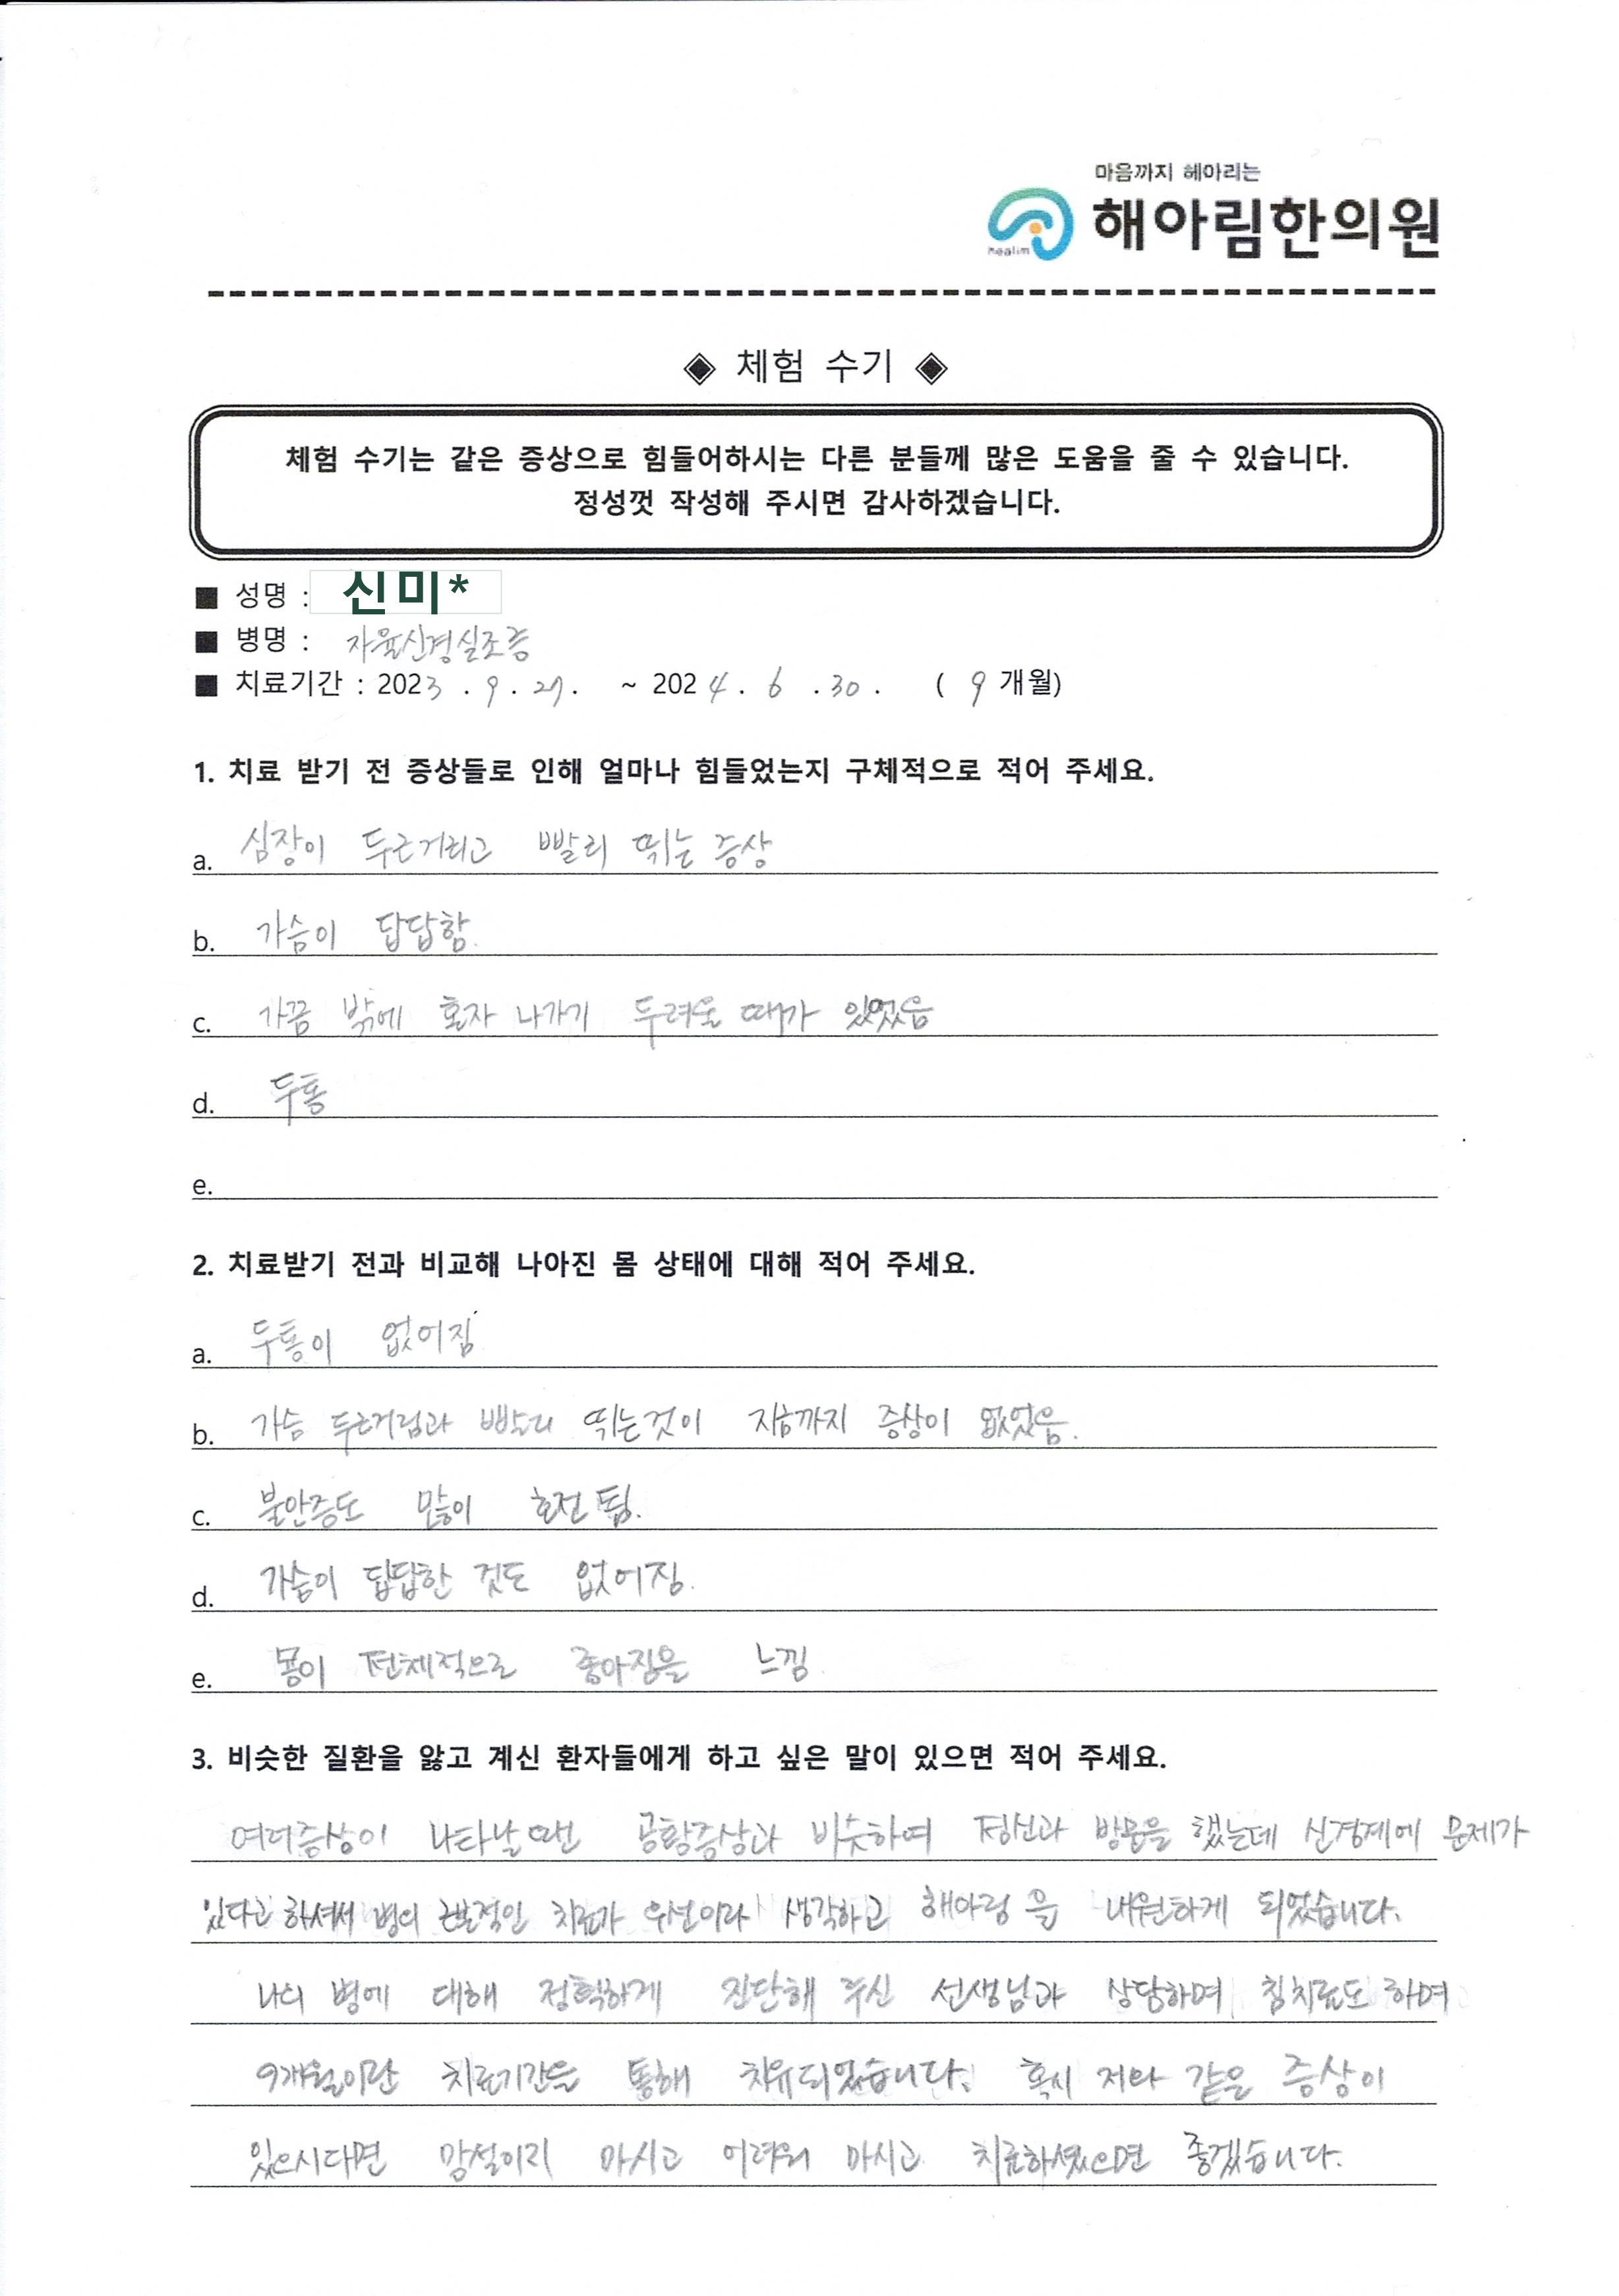 마음까지 헤아리는
해아림한의원
healim
◈ 체험 수기 ◈
체험 수기는 같은 증상으로 힘들어하시는 다른 분들께 많은 도움을 줄 수 있습니다.
정성껏 작성해 주시면 감사하겠습니다.
■ 성명 : 신미*
■ 병명 : 자율신경실조증
■ 치료기간 : 2023 . 9 . 27. ~ 2024 . 6 . 30 . ( 9 개월)
1. 치료 받기 전 증상들로 인해 얼마나 힘들었는지 구체적으로 적어 주세요.
a. 심장이 두근거리고 빨리 뛰는 증상
b. 가슴이 답답함.
c. 가끔 밖에 혼자 나가기 두려울 때가 있었음
d. 두통
e.
2. 치료받기 전과 비교해 나아진 몸 상태에 대해 적어 주세요.
a. 두통이 없어짐
b. 가슴 두근거림과 빨리 뛰는것이 지금까지 증상이 없었음.
c. 불안증도 많이 호전 됨.
d. 가슴이 답답한 것도 없어짐.
e. 몸이 전체적으로 좋아짐을 느낌
3. 비슷한 질환을 앓고 계신 환자들에게 하고 싶은 말이 있으면 적어 주세요.
여러증상이 나타날땐 공황증상과 비슷하여 정신과 방문을 했는데 신경계에 문제가
있다고 하셔서 병의 근본적인 치료가 우선이라 생각하고 해아림을 내원하게 되었습니다.
나의 병에 대해 정확하게 진단해 주신 선생님과 상담하며 침치료도 하며
9개월이란 치료기간을 통해 치유되었습니다. 혹시 저와 같은 증상이
있으시다면 망설이지 마시고 어려워 마시고 치료하셨으면 좋겠습니다.